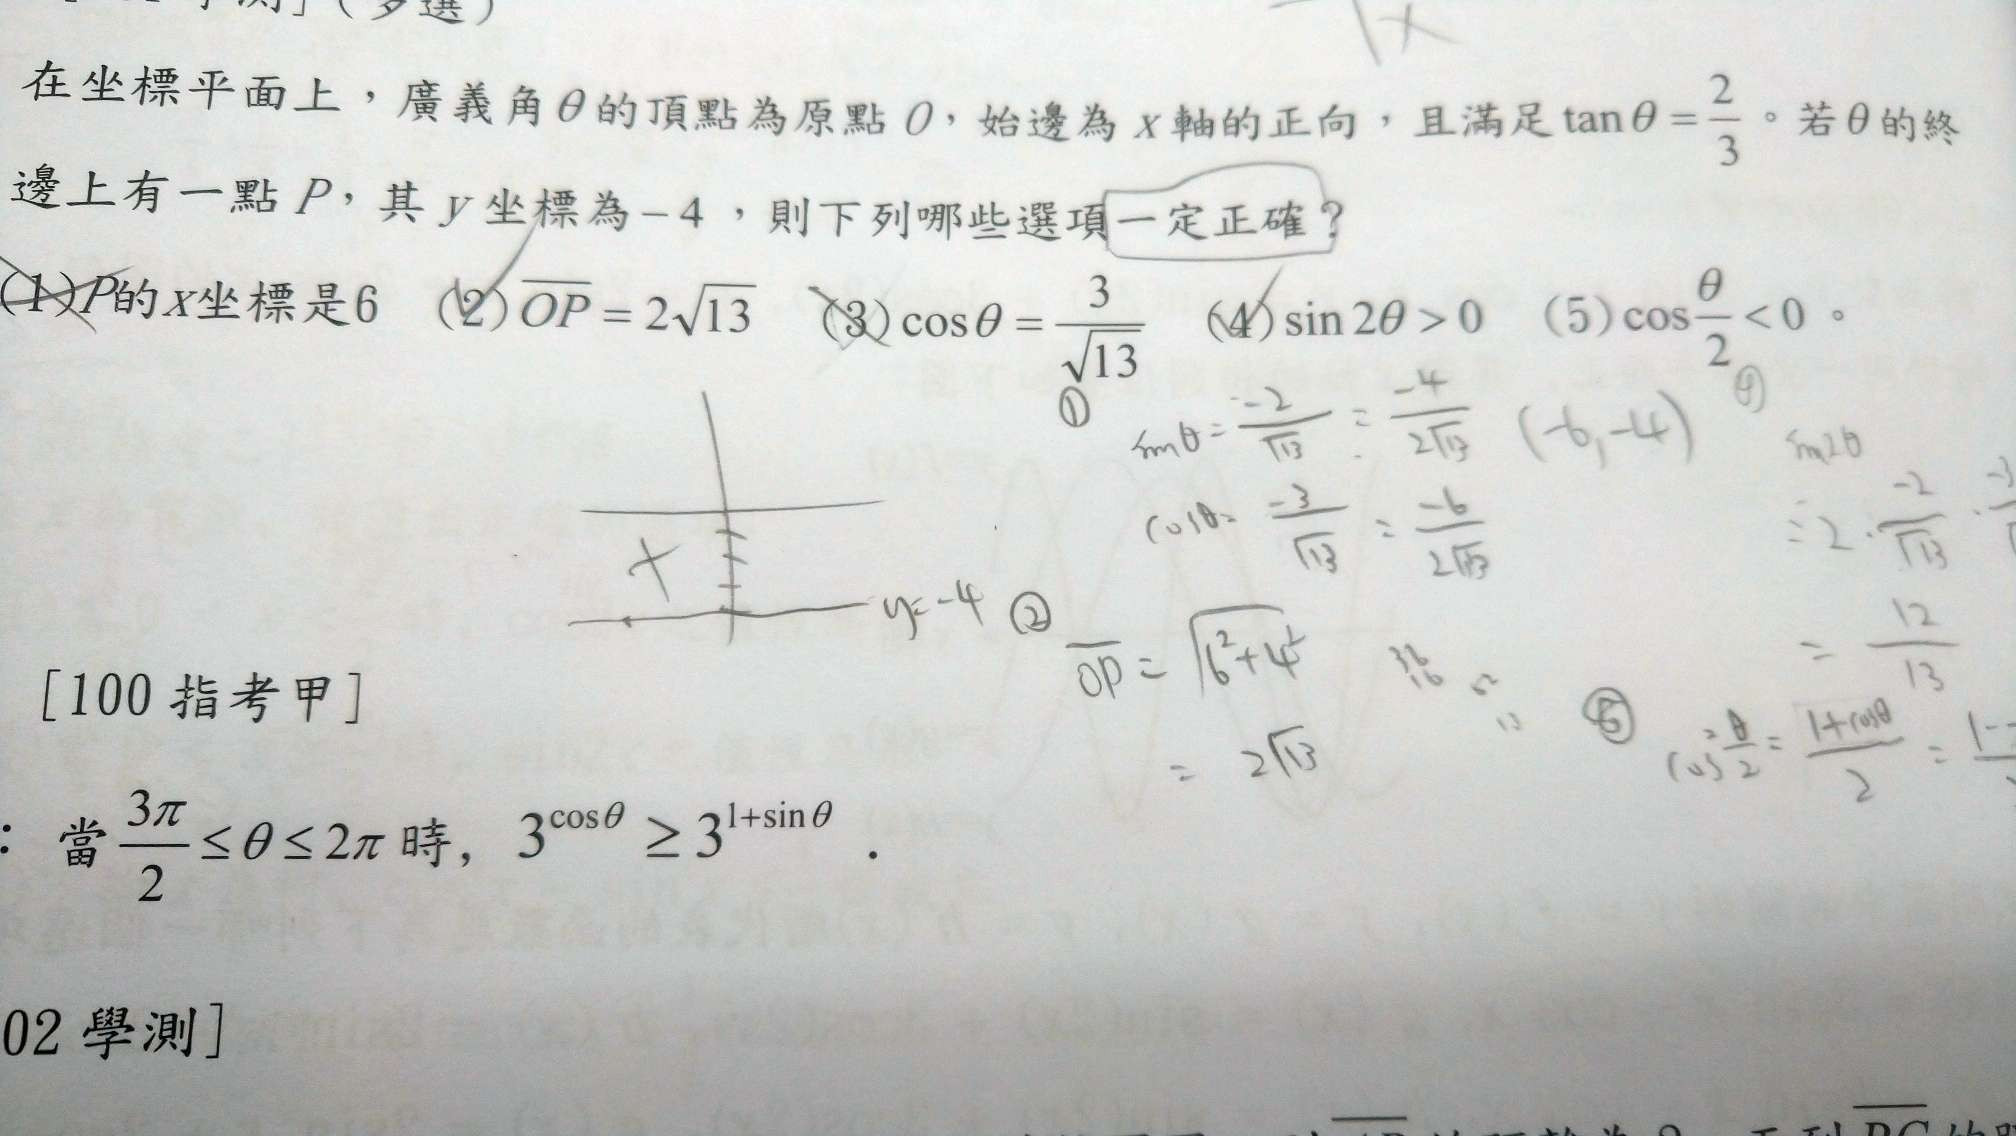 學測](多選)
在坐標平面上，廣義角θ的頂點為原點O，始邊為x軸的正向，且滿足tanθ=2/3。若θ的終
邊上有一點P，其y坐標為-4，則下列哪些選項一定正確？
(1)P的x坐標是6 (2)OP=2√13 (3)cosθ=3/√13 (4)sin2θ>0 (5)cosθ/2<0。
① sinθ=-2/√13=-4/2√13 (-6,-4)
cosθ=-3/√13=-6/2√13
④ sin2θ
=2·-2/√13·-3
=12/13
y=-4
② OP=√6²+4²
=2√13
36
16
⑤ cos²θ/2=1+cosθ/2=1-
[100指考甲]
：當3π/2≤θ≤2π時，3^cosθ≥3^1+sinθ．
02學測]